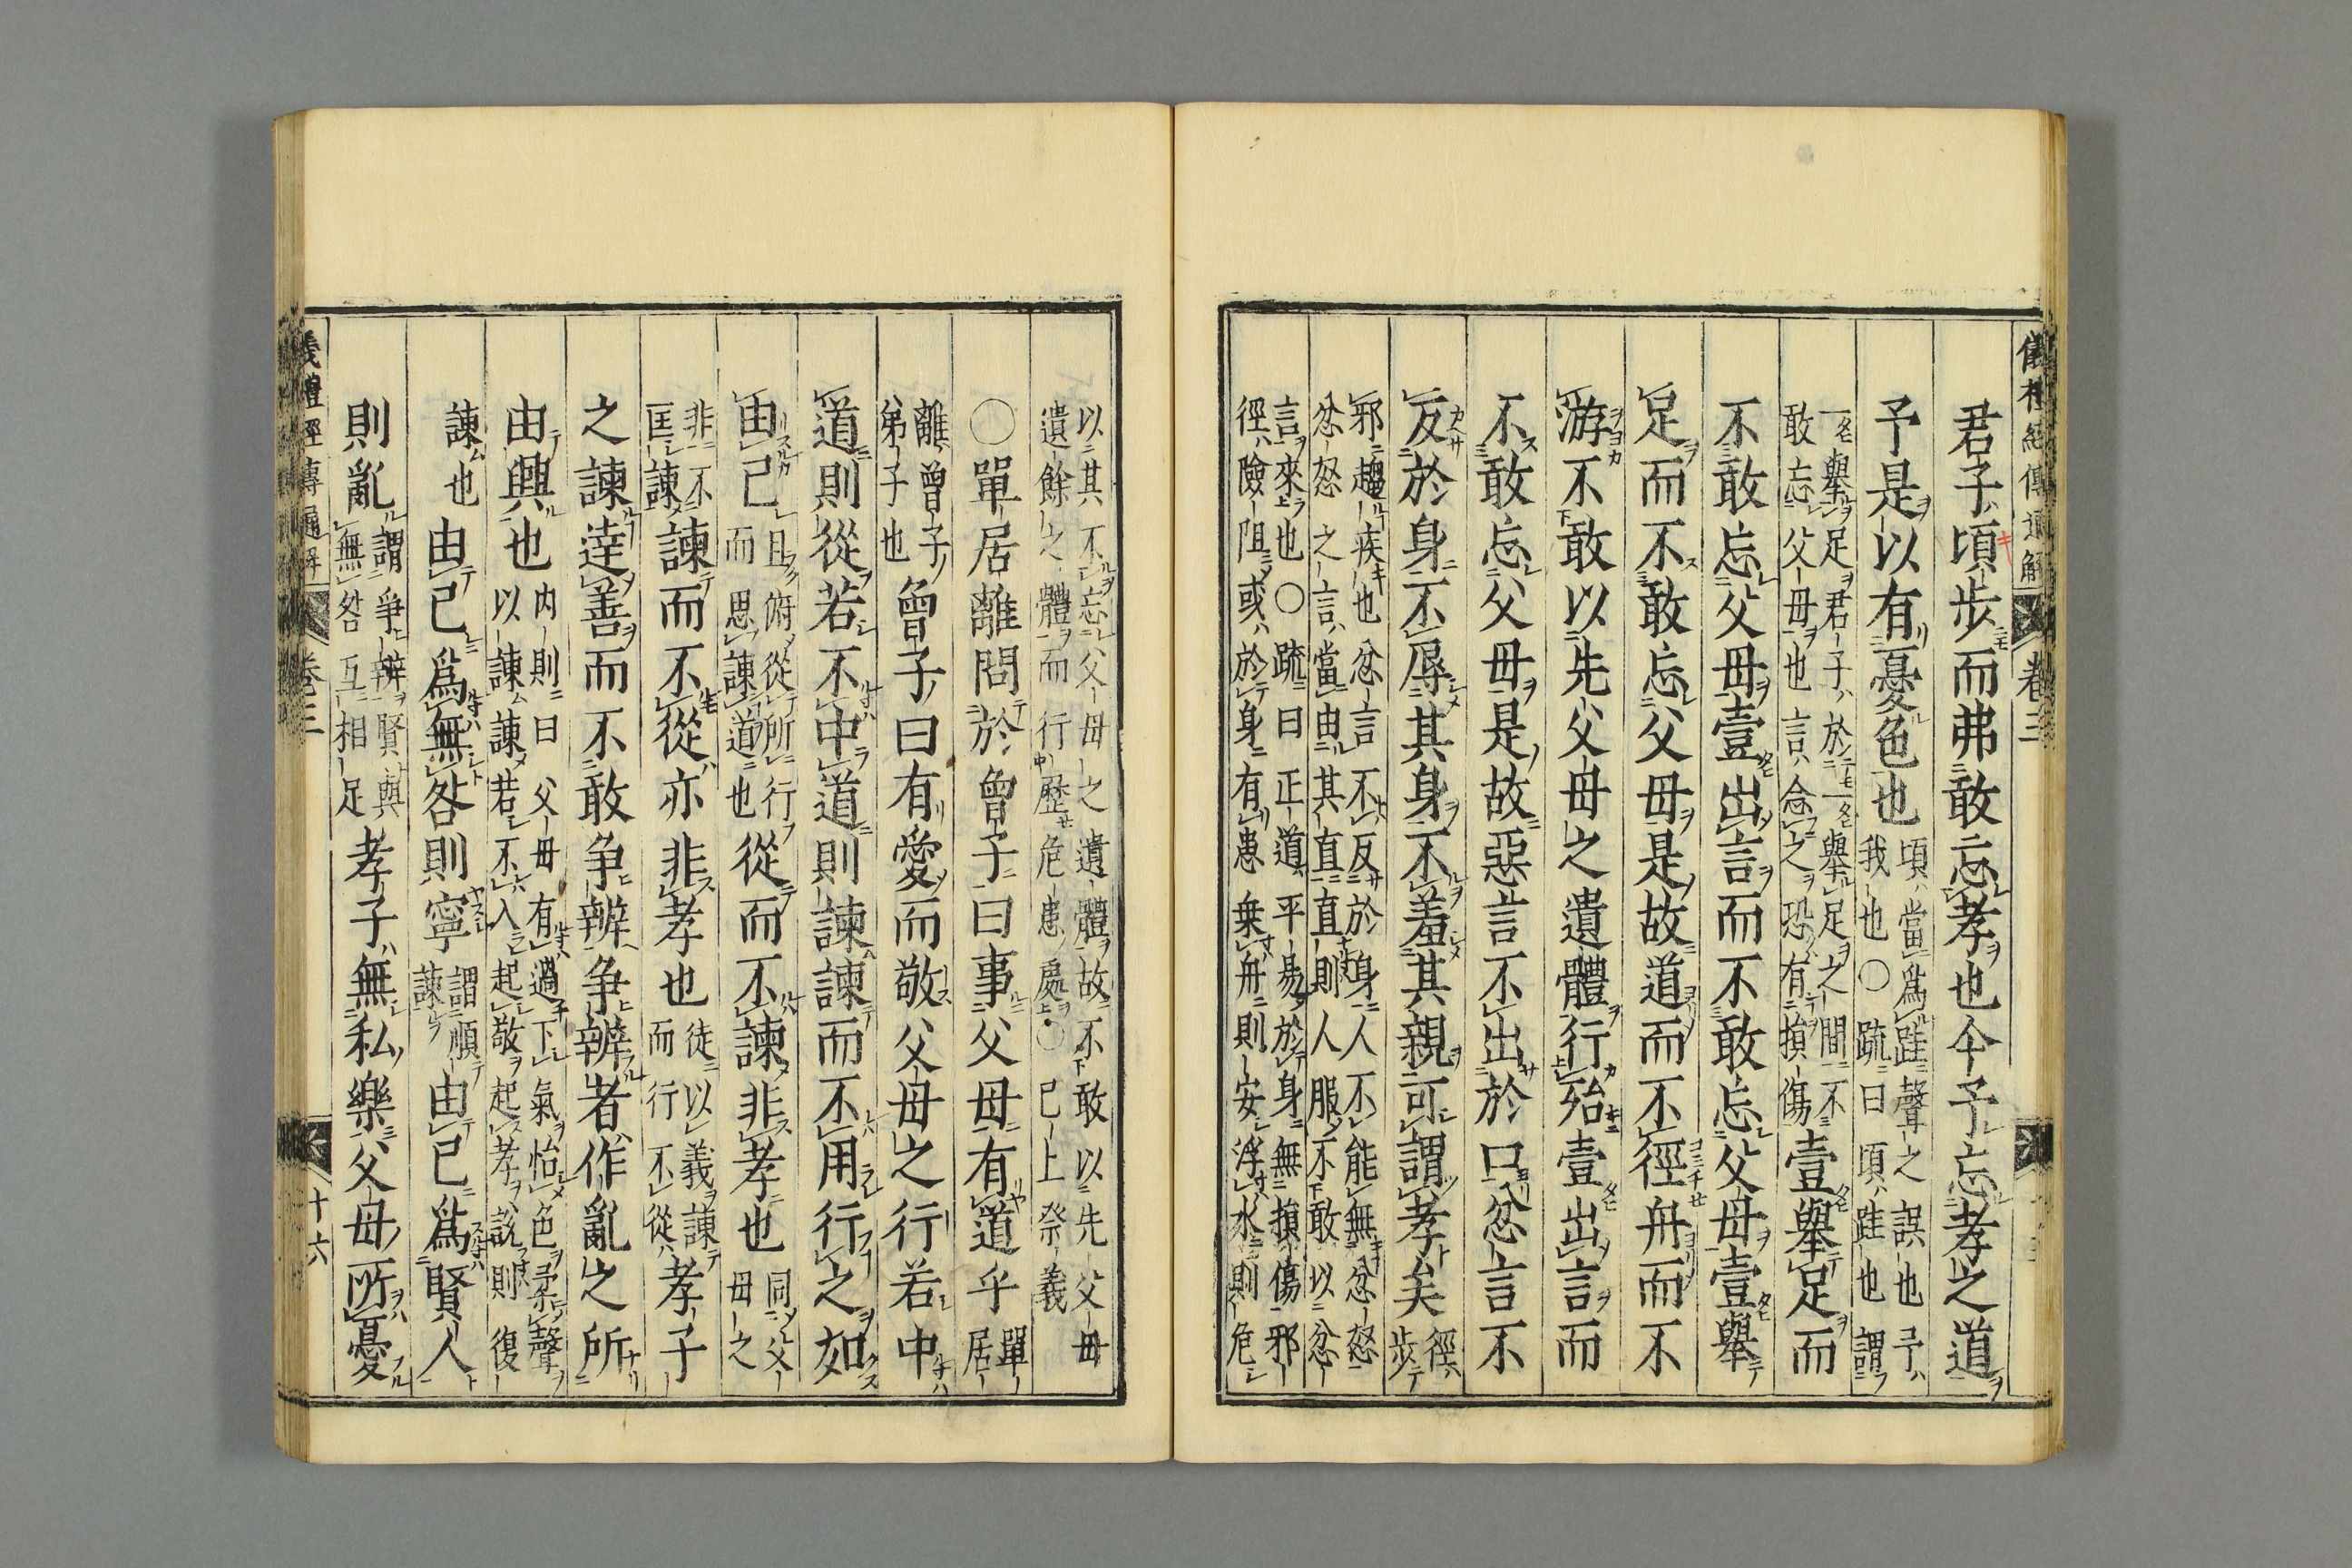 儀礼經傳通解 卷三
君子頃步而弗敢忘孝也今予忘孝之道
予是以有憂色也
頃當爲跬聲之誤也予
我也○疏曰頃跬也謂
一舉足君子於一舉足之間不
敢忘父母也言念之恐有損傷
壹舉足而
不敢忘父母壹出言而不敢忘父母壹舉
足而不敢忘父母是故道而不徑舟而不
游不敢以先父母之遺體行殆壹出言而
不敢忘父母是故惡言不出於口忿言不
反於身不辱其身不羞其親可謂孝矣
徑
步
邪趨疾也忿言不反於身人不能無忿怒
忿怒之言當由其直直則人服不敢以忿
言來也○疏曰正道平易於身無損傷邪
徑險阻或於身有患乗舟則安浮水則危
以其不忘父母之遺體故不敢以先父母
遺餘之體而行歷危患處○已上祭義
○單居離問於曾子曰事父母有道乎
單
居
離曾子
弟子也
曾子曰有愛而敬父母之行若中
道則從若不中道則諫諫而不用行之如
由己
且俯從所行
而思諫道也
從而不諫非孝也
同父
母之
非不
匡諫
諫而不從亦非孝也
徒以義諫
而行不從
孝子
之諫逹善而不敢争辨争辨者作亂之所
由興也
内則曰父母有過下氣怡色柔聲
以諫諫若不入起敬起孝説則復
諫也
由己爲無咎則寧
謂順
諫
由己爲賢人
則亂
謂爭辨賢與
無咎互相足
孝子無私樂父母所憂
義禮經傳通解 卷三 十六